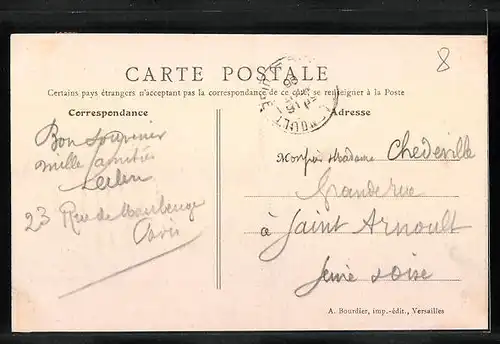 8
CARTE POSTALE
Certains pays étrangers n'acceptant pas la correspondance de ce côté, se renseigner à la Poste
Correspondance
Adresse
Bon souvenir
mille amitiés
23 Rue de Maubeuge
Paris
Madame Chedeville
Grande rue
à Saint Arnoult
Seine & Oise
A. Bourdier, imp.-édit., Versailles